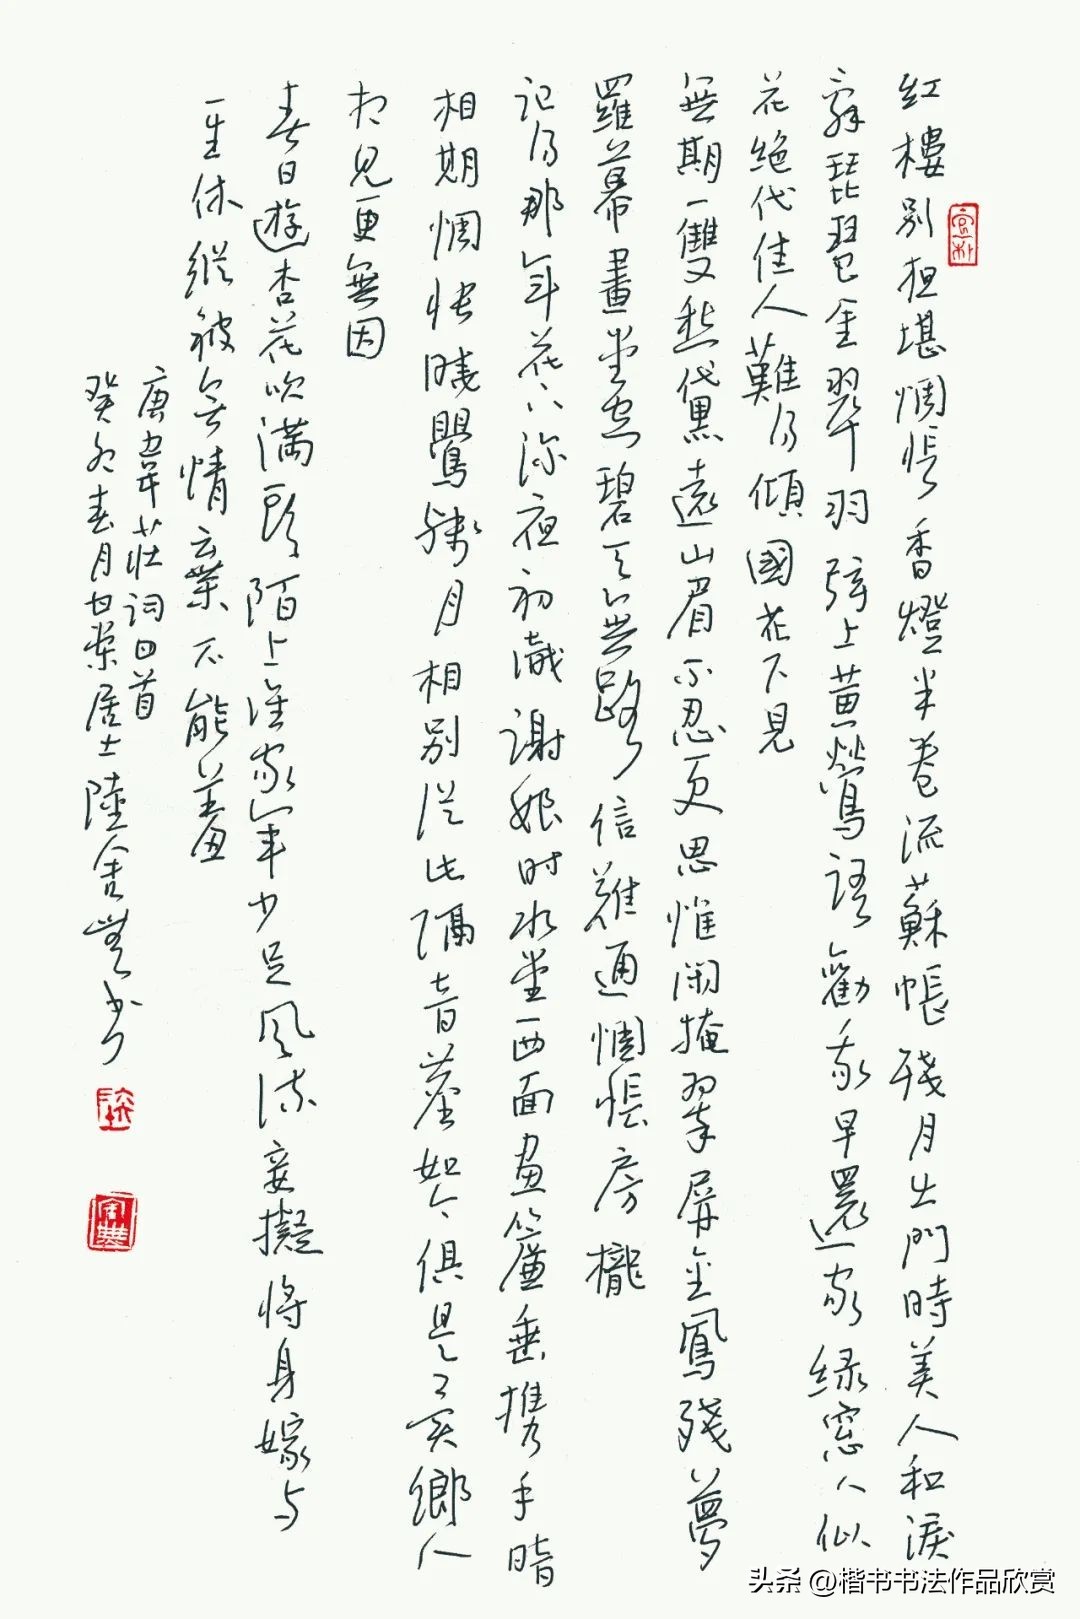 紅樓別夜堪惆悵香燈半卷流蘇帳殘月出門時美人和淚
辭琵琶金翠羽弦上黄鶯語勸我早還家綠窗人似
花絕代佳人難得傾國花下見
無期一雙愁黛遠山眉不忍更思惟閑掩翠屏金鳳殘夢
羅幕畫堂空碧天無路信難通惆悵房櫳
記得那年花下深夜初識謝娘時水堂西面画簾垂攜手暗
相期惆悵曉鶯殘月相別從此隔音塵如今俱是異鄉人
相見更無因
春日遊杏花吹滿頭陌上誰家年少足風流妾擬將身嫁與
一生休縱被無情棄不能羞
唐韋莊詞四首
癸卯春月居士陸書
头条 @楷书书法作品欣赏